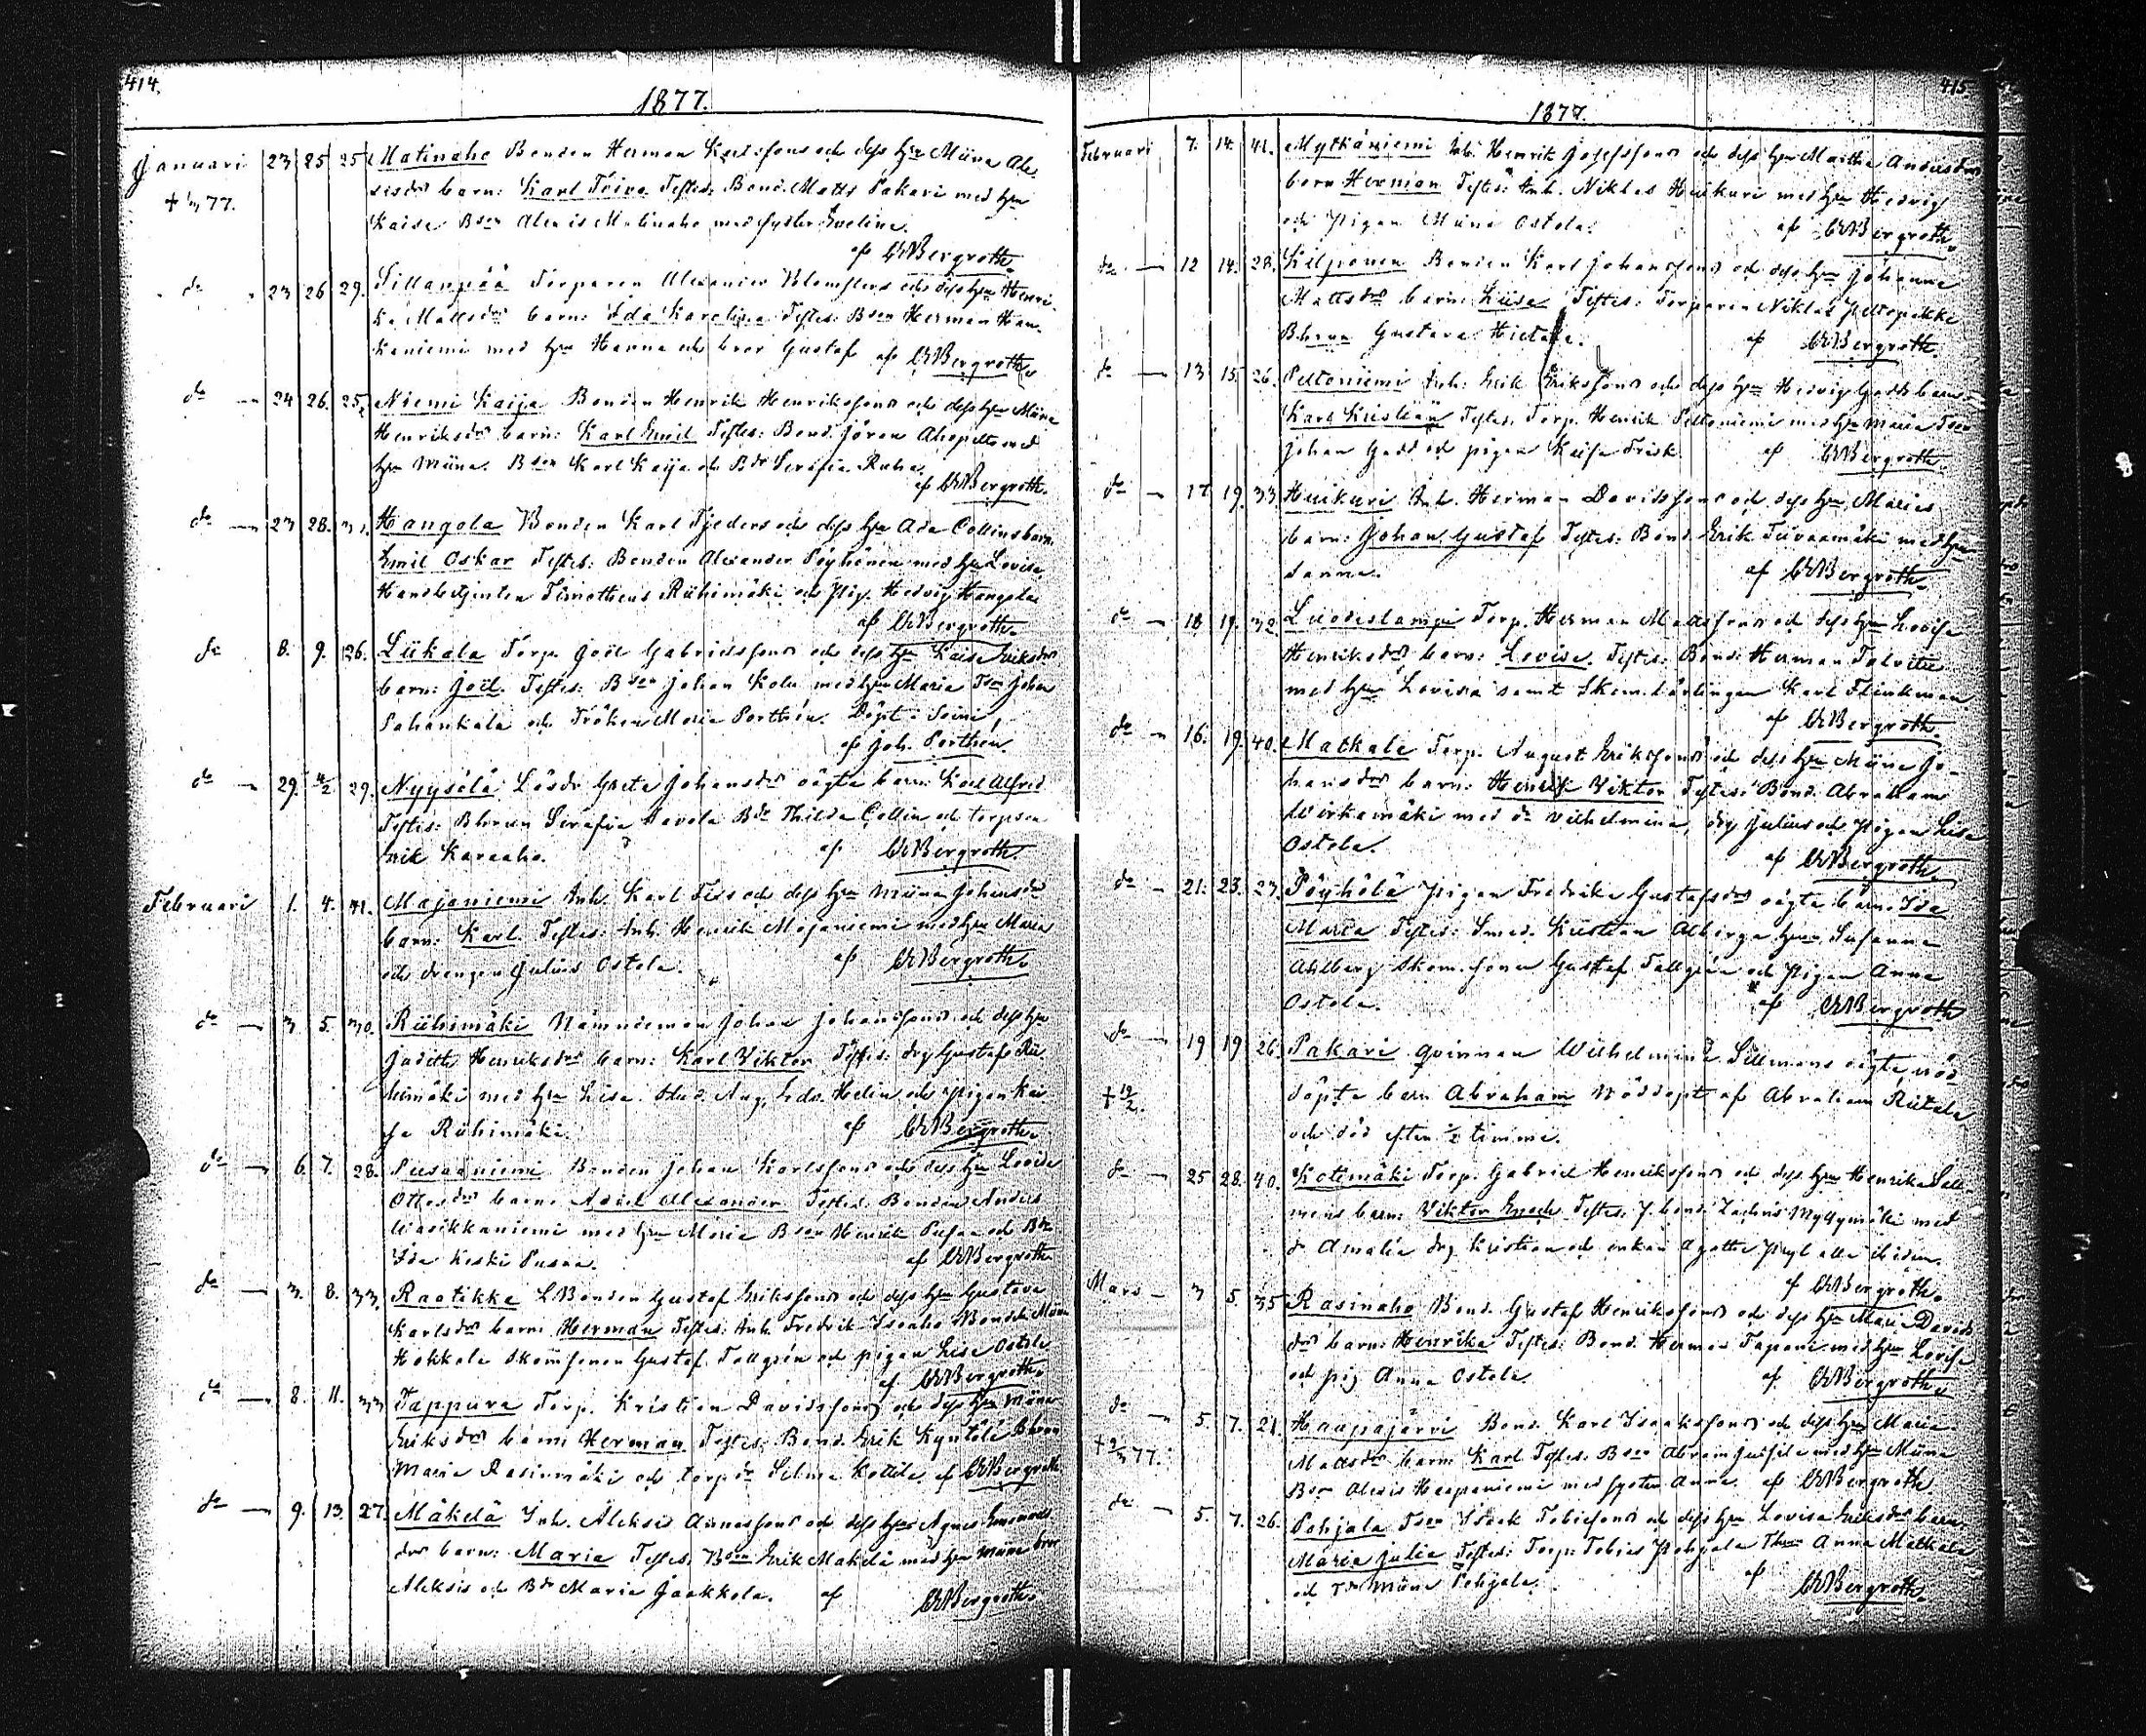 414.
1877.
Januari 23 25 25 Matinaho Bonden Herman Karlssons och dess hu Miina Alex
† 77. sisdr barn: Karl Toivo Testes: Bond. Matts Pakari med hu
Kaisa Bson Alexis Matinaho med syster Evelina.
af CWBergroth.
do 23 26 29. Sillanpää Torparen Alexander Blomsters och dess hu Henri-
ka Mattsdr barn: Ida Karolina Testes: Bson Herman Han-
kaniemi med hu Hanna och bror Gustaf af CWBergroth.
do 24 26. 25. Niemi Kaija Bonden Henrik Henrikssons och dess hu Miina
Henriksdr barn: Karl Emil Testes: Bond. Jöran Ahopelto med
hu Miina. Bson Karl Kaija och Bdr Serafia Ruha.
af CWBergroth.
do 23 28. 31. Hangola Bonden Karl Tjeders och dess hu Ada Collins barn:
Emil Oskar Testes: Bonden Alexander Pöyhönen med hu Lovisa
Timotheus Riihimäki och Pig. Hedvig Hangola
af CWBergroth.
do 8. 9. 26. Liikala Torp. Joel Gabrielssons och dess hu Kaisa Eriksdr
barn: Joel. Testes: Bson Johan Kolu med hu Maria Tson Johan
Pahankala och Fröken Maria Porthén. Döpt i Soini,
af Joh. Porthén
do 29. 4/2 29. Nyysölä Lösdr Greta Johansdr oägta barn: Karl Alfred
Testes: Bhrun Serafia Savola Bdr Thilda Collin och torpson
Erik Karaaho. af CWBergroth.
Februari 1. 4. 41. Majaniemi Inh. Karl och dess hu Miina Johansdr
barn: Karl. Testes: Inh. Henrik Majaniemi med hu Maria
och drengen Julius Ostola. af CWBergroth.
do 3 5. 30. Riihimäki Nämndeman Johan Johanssons och dess hu
Judith Henriksdr barn: Karl Viktor Testes: drg Gustaf Rii-
himäki med hu Lisa. Stud. Aug. Edv. Helin och Pigan Kai-
sa Riihimäki. af CWBergroth.
do 6. 7. 28. Pusaaniemi Bonden Johan Karlssons och dess hu Lovisa
Ottosdr barn: Axel Alexander Testes: Bonden Anders
Wasikkaniemi med hu Maria Bson Henrik Pusaa och Bdr
Ida Keski Pusaa. af CWBergroth
do 3. 8. 33. Raatikka LBonden Gustaf Erikssons och dess hu Gustava
Karlsdr barn: Herman Testes: Inh. Fredrik Isoaho Bondd. Miina
Hokkola Skom.sonen Gustaf Tallgrén och pigan Lisa Ostola
af CWBergroth.
do 8. 11. 33 Tappura Torp. Kristian Davidssons och dess hu Miina
Eriksdr barn: Herman Testes: Bond. Erik Kyntölä Bhrun
Maria Rasinmäki och torpdr Selma Kottila af CWBergroth
do 9. 13. 27. Mäkelä Inh. Aleksis Annassons och dess hu Agnes
dr barn: Maria Testes: Bson Erik Mäkelä med hu Miina bror
Aleksis och Bdr Maria Jaakkola. af CWBergroth.
415.
1877.
Februari 7. 14. 41. Mytkäniemi Inh. Henrik Josefssons och dess hu Martha Andersdr
barn Herman Testes: Inh. Niklas Huikuri med hu Hedvig
och Pigan Miina Ostola. af CWBergroth.
do 12 14. 28. Kilponen Bonden Karl Johanssons och dess hu Johanna
Mattsdr barn: Liisa Testes: Torparen Niklas Peltopakka
Bhrun Gustava Hietala. af CWBergroth.
do 13 15. 26. Peltoniemi Inh. Erik Erikssons och dess hu Hedvig Gadds barn:
Karl Kristian Testes: Torp. Henrik Peltoniemi med hu Maria Tson
Johan Gadd och pigan Kaisa Frisk. af CWBergroth.
do 17 19. 33. Huikuri Inh. Herman Davidssons och dess hu Marias
barn: Johan Gustaf Testes: Bond. Erik Turvaamäki med hu
Sanna. af CWBergroth.
do 18 19. 32. Luodeslampi Torp. Herman Mattssons och dess hu Lovisa
Henriksdr barn: Lovisa. Testes: Bond. Herman Talvitie
med hu Lovisa samt Skom.lärlingen Karl Flinkman
af CWBergroth.
do 16. 19. 40. Matkala Torp. August Erikssons och dess hu Miina Jo-
hansdr barn: Henrik Viktor Testes: Bond. Abraham
Wirkamäki med dr Vilhelmina, drg Julius och Pigan Lisa
Ostola. af CWBergroth.
do 21. 23. 27. Pöyhölä Pigan Fredrika Gustafsdr oägta barn: Ida
Maria Testes: Smed. Kristian Ahlbergs hu Susanna
Ahlberg Skom.sonen Gustaf Tallgrén och Pigan Anna
Ostola. af CWBergroth
do 19 19 26. Pakari qvinnan Wilhelmina Sillmans oägta nöd-
† 19/2. döpta barn Abraham Nöddöpt af Abraham Riitala
och död efter 1/2 timme.
do 25 28. 40. Kotimäki Torp. Gabriel Henrikssons och dess hu Henrika Sill-
mans barn: Viktor Enoch Testes: f. bond. Zachris Myllymäki med
dr Amalia drg Kristian och enkan Agatha alla ibidem.
af CWBergroth.
Mars 3 5. 35 Rasinaho Bond. Gustaf Henrikssons och dess hu Maria Davids
dr barn: Henrika Testes: Bond. Herman Tapani med hu Lovisa
och pig Anna Ostola. af CWBergroth.
do 5. 7. 21. Haapajärvi Bond. Karl Isaakssons och dess hu Maria
† 77. Mattsdr barn: Karl Testes: Bson Abram Jussila med hu Miina
Bson Alexis Haapaniemi med syster Anna. af CWBergroth
do 5. 7. 26. Pohjala Tson Isaak Tobiessons och dess hu Lovisa Eriksdr barn:
Maria Julia Testes: Torp. Tobias Pohjala Thrun Anna Matkala
och Tdr Miina Pohjala. af CWBergroth.